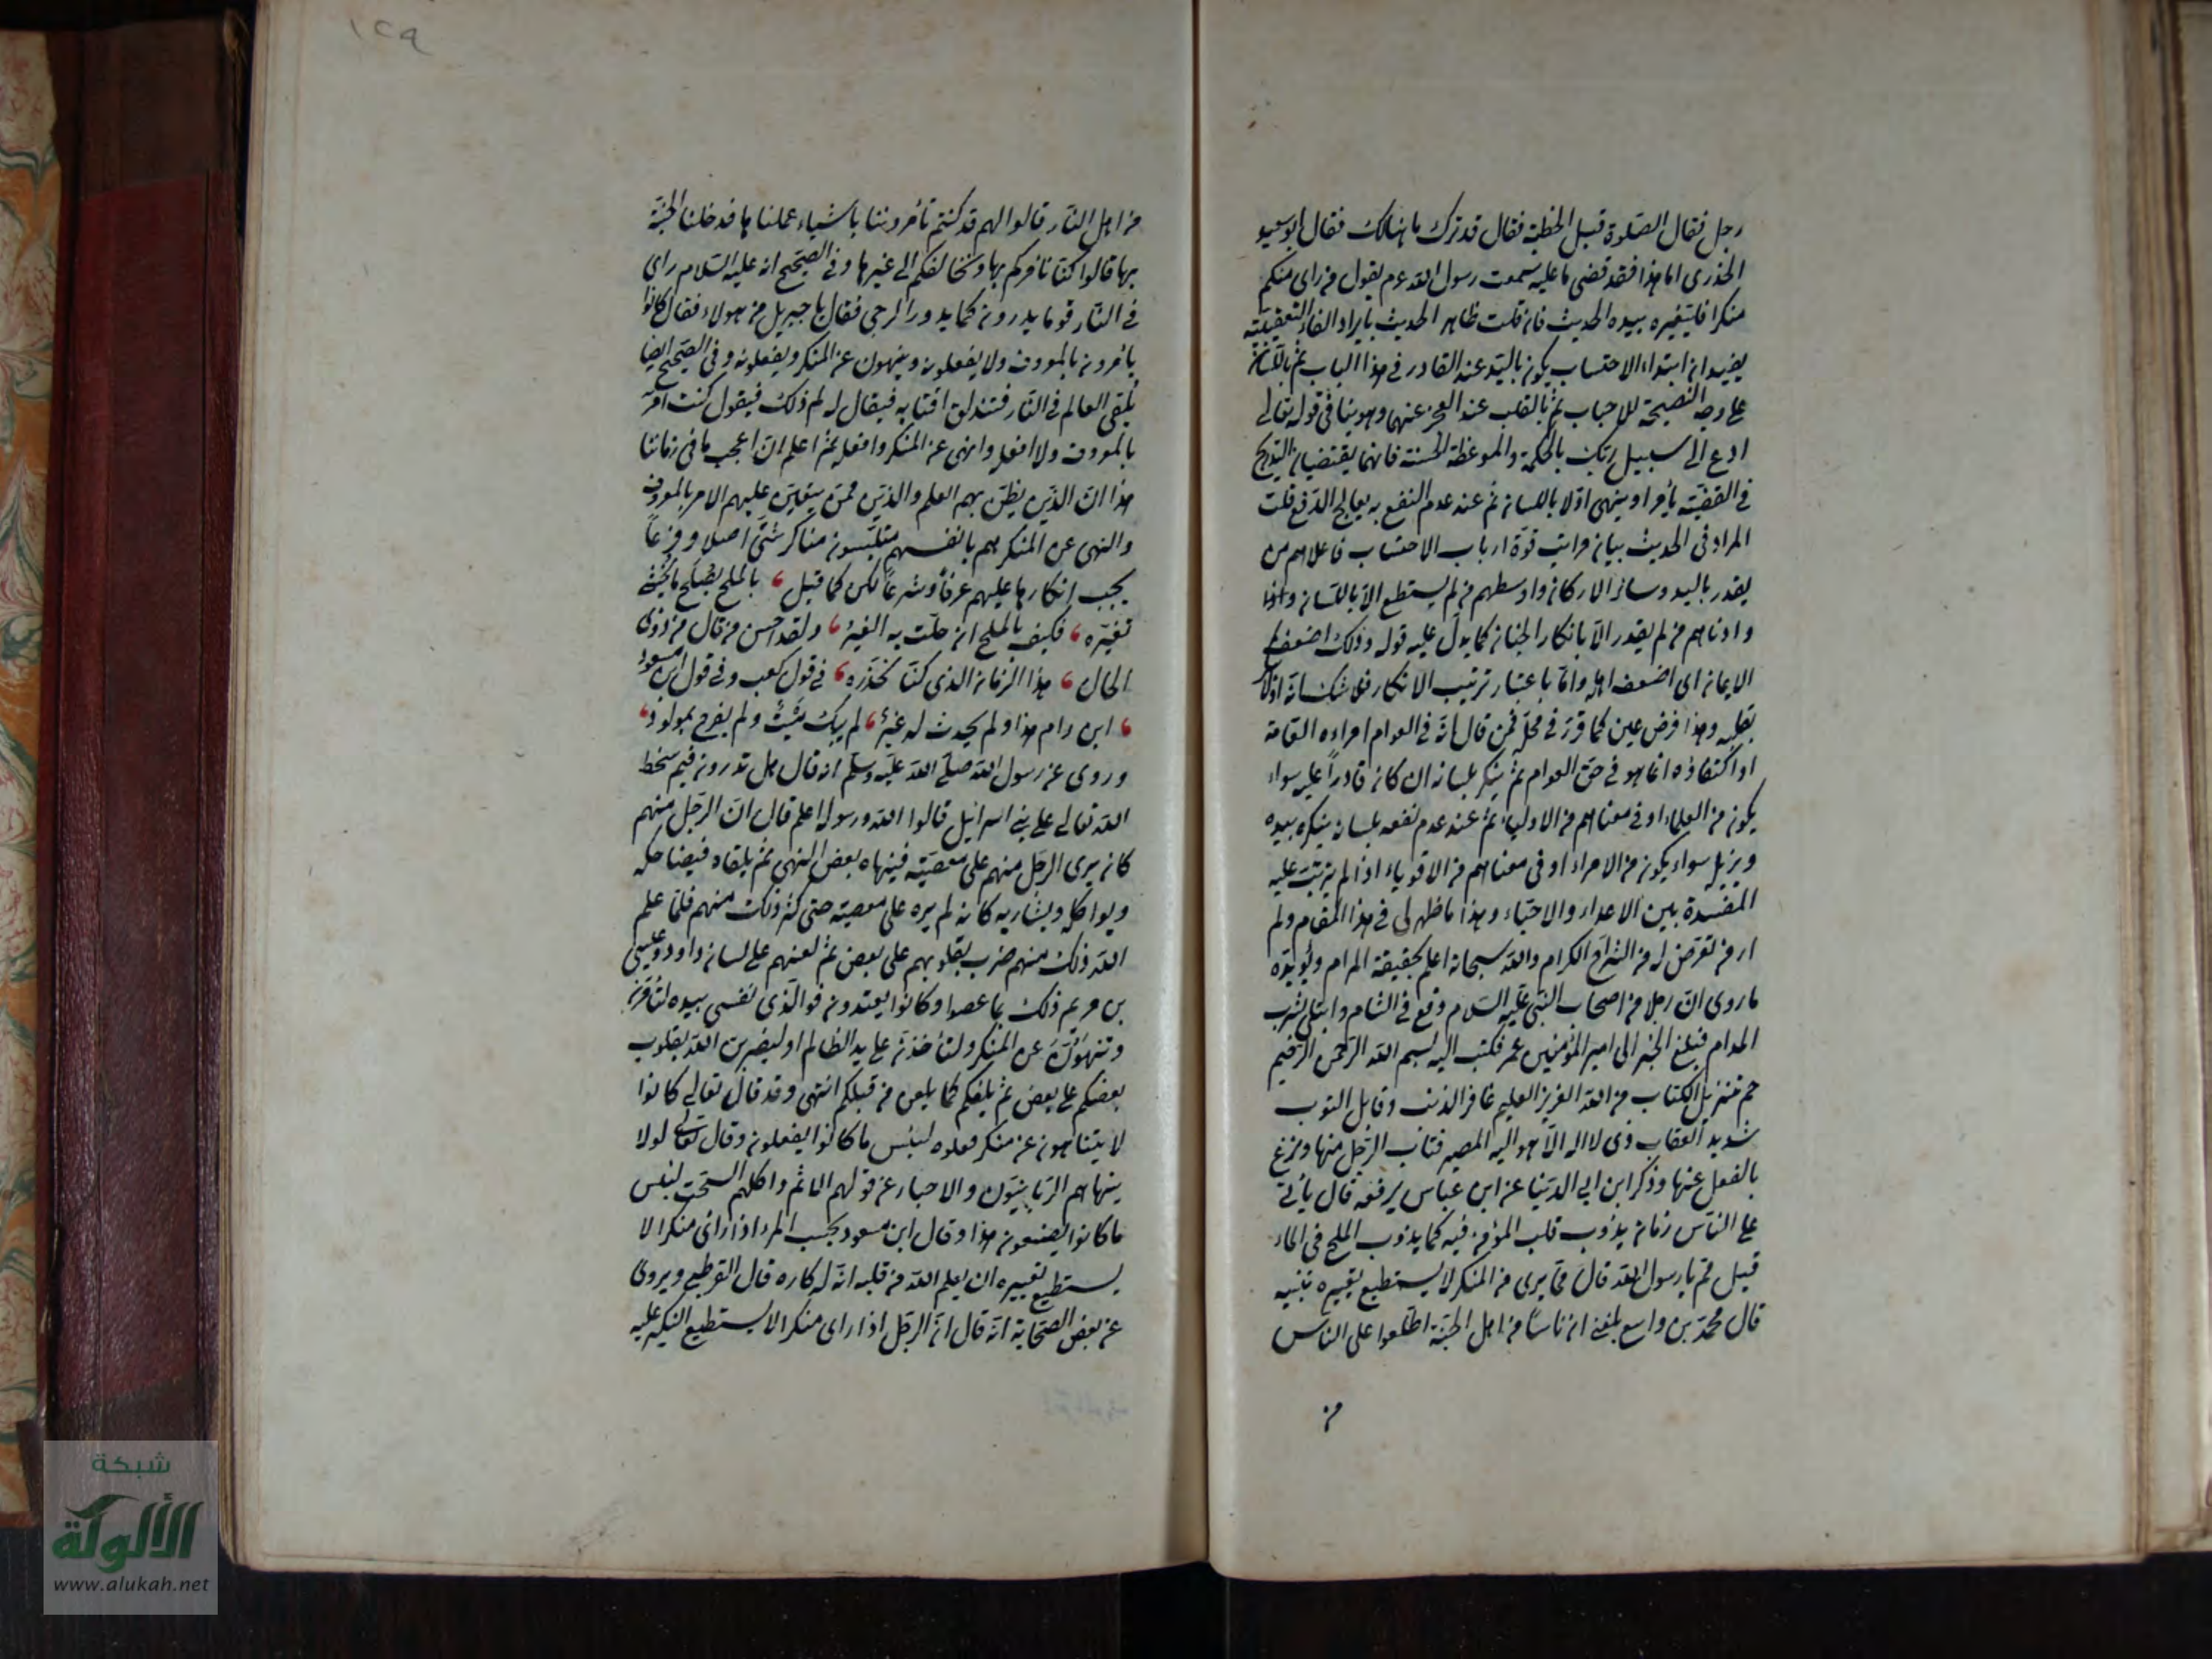 رجل فقال الصلوة قبل الخطبة فقال قد ترك ما هنالك فقال ابو سعيد
الخدرى اما هذا فقد قضى ما عليه سمعت رسول الله عم يقول من راى منكم
منكرا فليغيره بيده الحديث فان قلت ظاهر الحديث بايراد الفاء التعقيبية
يفيد ان ابتداء الاحتساب يكون باليد عند القادر فى هذا الباب ثم باللسان
على وجه النصيحة للاحباب ثم بالقلب عند العجز عنهما وهو ينافى قوله تعالى
ادع الى سبيل ربك بالحكمة والموعظة الحسنة فانهما يقتضيان التدريج
فى القضية يأمر او ينهى اولا باللسان ثم عند عدم النفع به يعالج الدفع قلت
المراد فى الحديث بيان مراتب قوة ارباب الاحتساب فاعلاهم من
يقدر باليد وسائر الاركان واوسطهم من لم يستطع الا باللسان
وادناهم من لم يقدر الا بانكار الجنان كما يدل عليه قوله وذلك اضعف
الايمان اى اضعف اهله واما باعتبار ترتيب الانكار فلا شك انه اولا
بقلبه وهذا فرض عين كما قرر فى محله فمن قال انه فى العوام امراده العامة
او اكتفاؤه انما هو فى حق العوام ثم ينكر بلسانه ان كان قادرا عليه سواء
يكون من العلماء او فى معناهم من الاولياء ثم عند عدم نفعه بلسانه ينكره بيده
ويزيله سواء يكون من الامراء او فى معناهم من الاقوياء اذا لم يترتب عليه
المفسدة بين الاعداء والاحباء وهذا ما ظهر لى فى هذا المقام ولم
ار من تعرض له من الشراح الكرام والله سبحانه اعلم بحقيقة المرام ويؤيده
ما روى ان رجلا من اصحاب النبى عليه السلام وقع فى الشام وابتلى بشرب
المدام فبلغ الخبر الى امير المؤمنين عمر فكتب اليه بسم الله الرحمن الرحيم
حم تنزيل الكتاب من الله العزيز العليم غافر الذنب وقابل التوب
شديد العقاب ذى لا اله الا هو اليه المصير فتاب الرجل منها ونزع
بالفعل عنها وذكر ابن ابى الدنيا عن ابن عباس يرفعه قال يأتى
على الناس زمان يذوب قلب المؤمن فيه كما يذوب الملح فى الماء
قيل مم يا رسول الله قال مما يرى من المنكر لا يستطيع يغييره تنبيه
قال محمد بن واسع بلغنى ان ناسا من اهل الجنة اطلعوا على الناس
من
١٢٩
من اهل النار قالوا لهم قد كنتم تأمروننا باشياء عملناها فدخلنا الجنة
بها قالوا كنا نأمركم بها ونخالفكم الى غيرها وفى الصحيح انه عليه السلام راى
فى النار قوما يدورون كما يدور الرحى فقال يا جبريل من هولاء فقال كانوا
يأمرون بالمعروف ولا يفعلون وينهون عن المنكر ويفعلونه وفى الصحيح ايضا
يلقى العالم فى النار فتندلق اقتابه فيقال له لم ذلك فيقول كنت آمر
بالمعروف ولا افعله وانهى عن المنكر وافعله ثم اعلم ان اعجب ما فى زماننا
هذا ان الذين يظن بهم العلم والدين ممن يتعين عليهم الامر بالمعروف
والنهى عن المنكر هم بانفسهم متلبسون مناكر شتى اصلا وفرعا
يجب انكارها عليهم عرفا وشرعا لكن كما قيل ، بالملح يصلح ما يخشى
تغيره ، فكيف بالملح ان حلت به الغير ، ولقد احسن من قال من ذوى
الحال ، هذا الزمان الذى كنا نحذره ، فى قول كعب وفى قول ابن مسعود
، ان دام هذا ولم يحدث له غير ، لم يبك ميت ولم يفرح بمولود ،
وروى عن رسول الله صلى الله عليه وسلم انه قال هل تدرون فيم سخط
الله تعالى على بنى اسرائيل قالوا الله ورسوله اعلم قال ان الرجل منهم
كان يرى الرجل منهم على معصيته فينهاه بعض النهى ثم يلقاه فيضاحكه
ويواكله ويشاربه كانه لم يره على معصيته حتى كثر ذلك منهم فلما علم
الله ذلك منهم ضرب بقلوبهم على بعض ثم لعنهم على لسان داود وعيسى
بن مريم ذلك بما عصوا وكانوا يعتدون فوالذى نفسى بيده لتأمرن
وتنهون عن المنكر ولتأخذن على يد الظالم او ليضربن الله بقلوب
بعضكم على بعض ثم يلعنكم كما يلعن من قبلكم انتهى وقد قال تعالى كانوا
لا يتناهون عن منكر فعلوه لبئس ما كانوا يفعلون وقال تعالى لولا
ينهاهم الربانيون والاحبار عن قولهم الاثم واكلهم السحت لبئس
ما كانوا يصنعون هذا وقال ابن مسعود بحسب المرء اذا راى منكرا لا
يستطيع تغييره ان يعلم الله من قلبه انه له كاره قال القرطبى ويروى
عن بعض الصحابة انه قال ان الرجل اذا راى منكرا لا يستطيع النكير عليه
شبكة
الألوكة
www.alukah.net